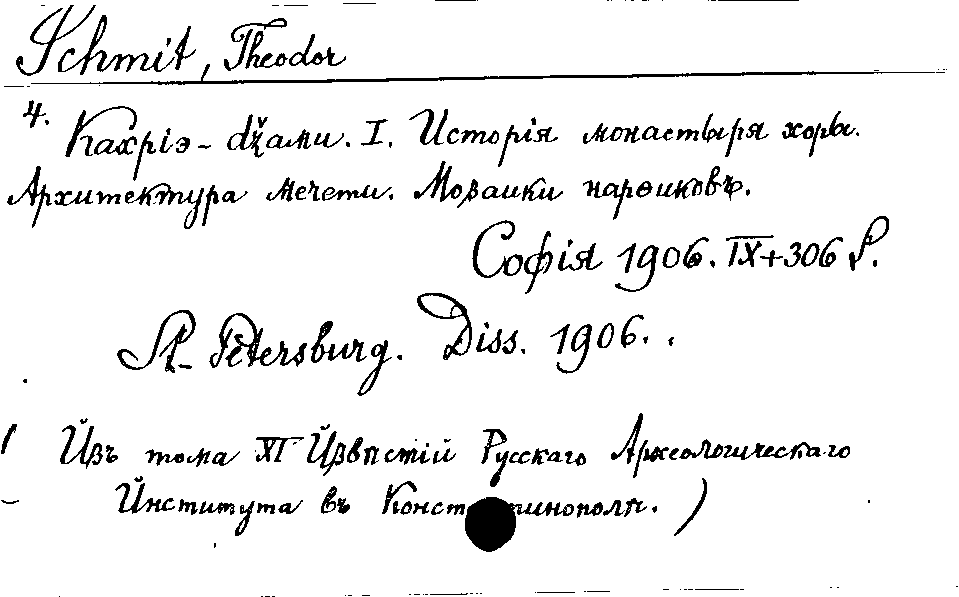 Schmit, Theodor
4. Кахріэ-džами. I. Исторія монастыря хоры.
Архитектура мечети. Мозаики нарѳиковъ.
Софія 1906. IX+306 S.
St. Petersburg. Diss. 1906.
( Изъ тома XI Извѣстій Русскаго Археологическаго
Института въ Константинополѣ. )